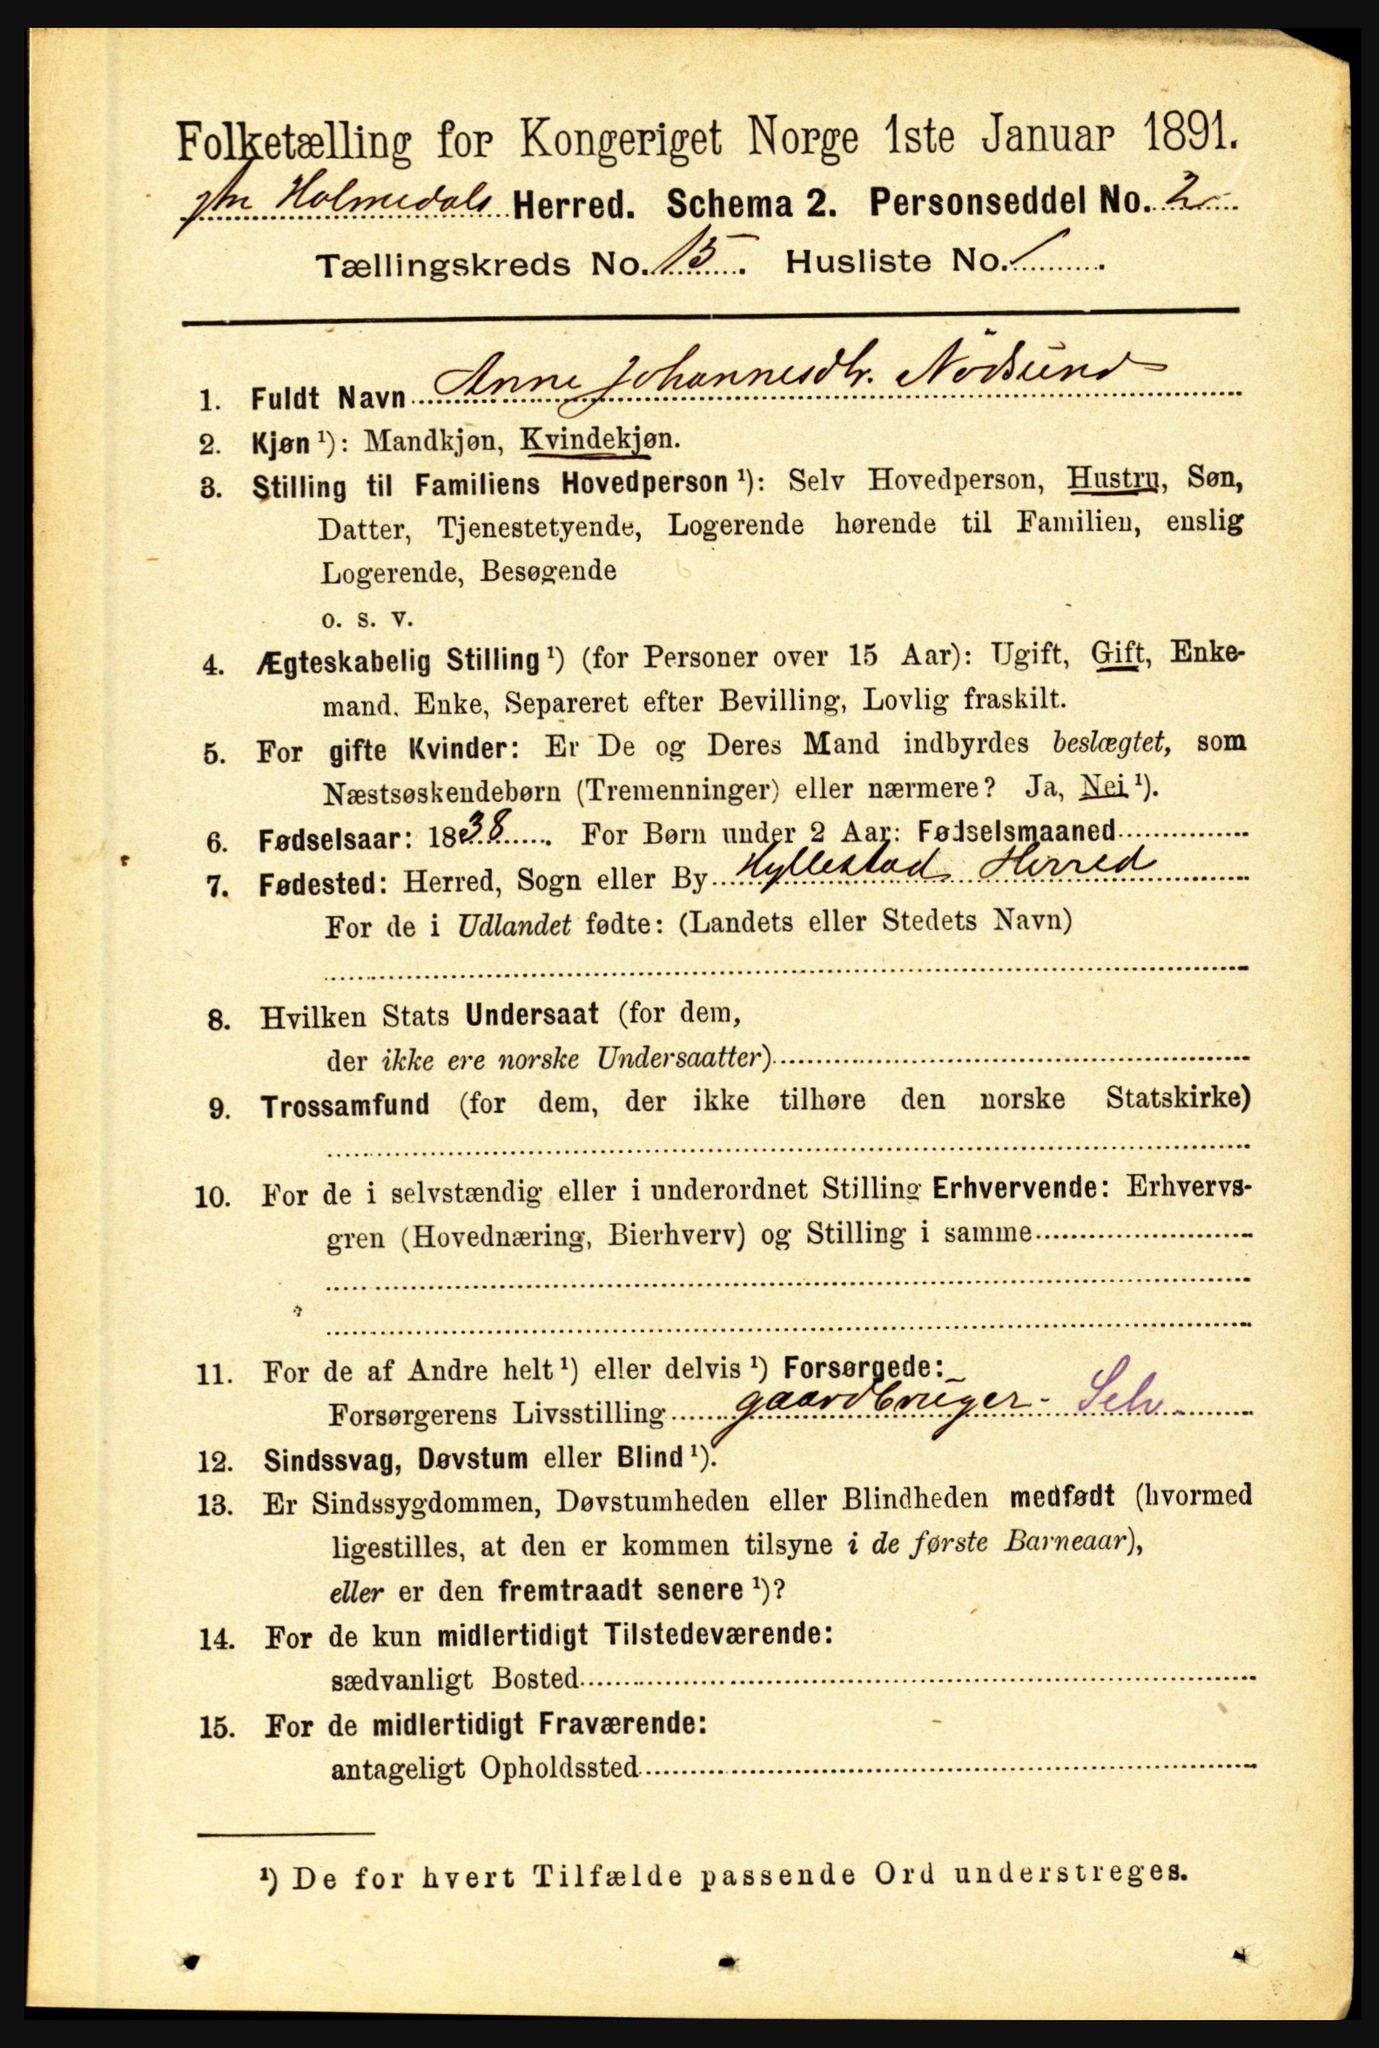 Folketælling for Kongeriget Norge 1ste Januar 1891.
Ytre Holmedals Herred. Schema 2. Personseddel No. 2
Tællingskreds No. 15. Husliste No. 1.
1. Fuldt Navn Anne Johannesdtr. Nödsund
2. Kjøn ¹): Mandkjøn, Kvindekjøn.
3. Stilling til Familiens Hovedperson ¹): Selv Hovedperson, Hustru, Søn,
Datter, Tjenestetyende, Logerende hørende til Familien, enslig
Logerende, Besøgende
o. s. v.
4. Ægteskabelig Stilling ¹) (for Personer over 15 Aar): Ugift, Gift, Enke-
mand. Enke, Separeret efter Bevilling, Lovlig fraskilt.
5. For gifte Kvinder: Er De og Deres Mand indbyrdes beslægtet, som
Næstsøskendebørn (Tremenninger) eller nærmere? Ja, Nei ¹).
6. Fødselsaar: 1838. For Børn under 2 Aar: Fødselsmaaned
7. Fødested: Herred, Sogn eller By Hyllestad Herred
For de i Udlandet fødte: (Landets eller Stedets Navn)
8. Hvilken Stats Undersaat (for dem,
der ikke ere norske Undersaatter)
9. Trossamfund (for dem, der ikke tilhøre den norske Statskirke)
10. For de i selvstændig eller i underordnet Stilling Erhvervende: Erhvervs-
gren (Hovednæring, Bierhverv) og Stilling i samme
11. For de af Andre helt ¹) eller delvis ¹) Forsørgede:
Forsørgerens Livsstilling gaardbruger - Selv
12. Sindssvag, Døvstum eller Blind ¹).
13. Er Sindssygdommen, Døvstumheden eller Blindheden medfødt (hvormed
ligestilles, at den er kommen tilsyne i de første Barneaar),
eller er den fremtraadt senere ¹)?
14. For de kun midlertidigt Tilstedeværende:
sædvanligt Bosted
15. For de midlertidigt Fraværende:
antageligt Opholdssted
¹) De for hvert Tilfælde passende Ord understreges.